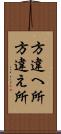 方違へ所
方違え所